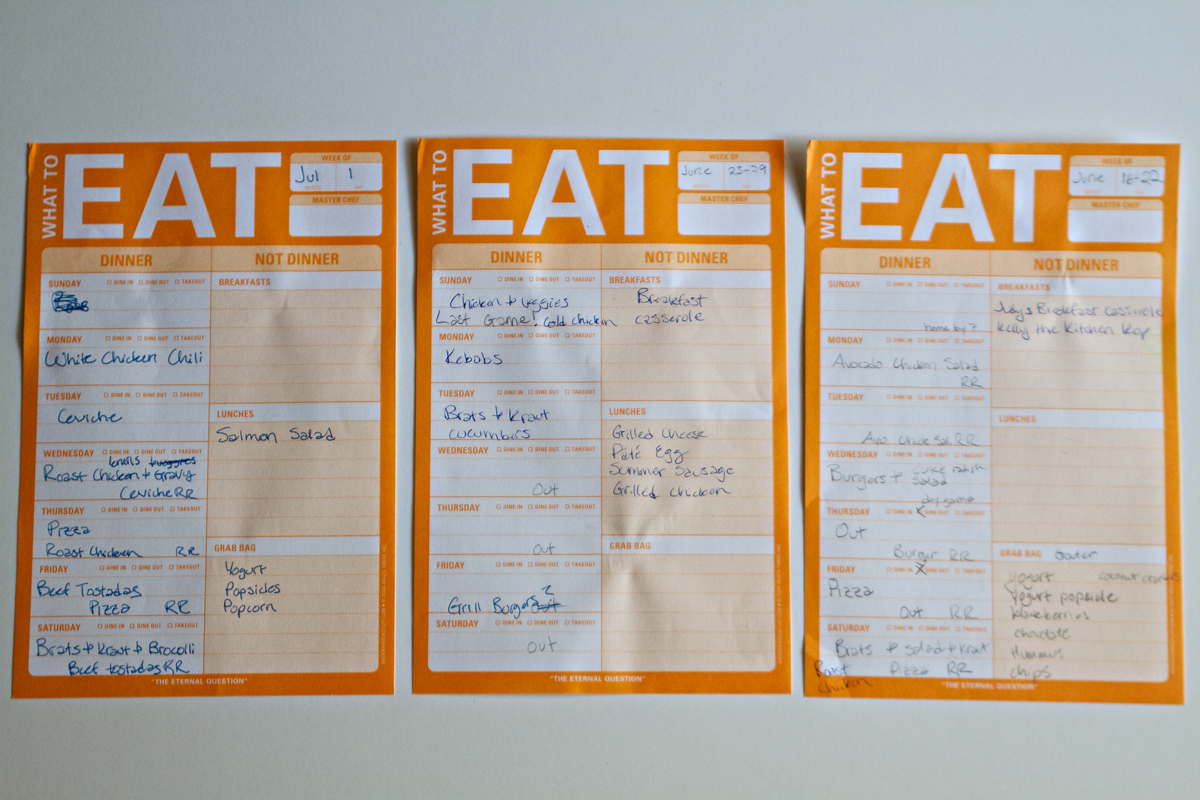 WHAT TO EAT
WEEK OF
Jul 1
MONTH DAY
MASTER CHEF
DINNER
NOT DINNER
SUNDAY DINE IN DINE OUT TAKEOUT
MONDAY DINE IN DINE OUT TAKEOUT
White Chicken Chili
TUESDAY DINE IN DINE OUT TAKEOUT
Ceviche
WEDNESDAY DINE IN DINE OUT TAKEOUT
Roast Chicken + Gravy
Ceviche RR
THURSDAY DINE IN DINE OUT TAKEOUT
Pizza
Roast Chicken RR
FRIDAY DINE IN DINE OUT TAKEOUT
Beef Tostadas
Pizza RR
SATURDAY DINE IN DINE OUT TAKEOUT
Brats + Kraut + Brocolli
Beef tostadas RR
BREAKFASTS
LUNCHES
Salmon Salad
GRAB BAG
Yogurt
Popsicles
Popcorn
"THE ETERNAL QUESTION"
WHAT TO EAT
WEEK OF
June 23-29
MONTH DAY
MASTER CHEF
DINNER
NOT DINNER
SUNDAY DINE IN DINE OUT TAKEOUT
Chicken + Veggies
Last Game! Cold Chicken
MONDAY DINE IN DINE OUT TAKEOUT
Kebobs
TUESDAY DINE IN DINE OUT TAKEOUT
Brats + Kraut
cucumbers
WEDNESDAY DINE IN DINE OUT TAKEOUT
Out
THURSDAY DINE IN DINE OUT TAKEOUT
Out
FRIDAY DINE IN DINE OUT TAKEOUT
Grill Burgers ?
SATURDAY DINE IN DINE OUT TAKEOUT
Out
BREAKFASTS
Breakfast
casserole
LUNCHES
Grilled Cheese
Pâté Egg
Summer Sausage
Grilled chicken
GRAB BAG
"THE ETERNAL QUESTION"
WHAT TO EAT
WEEK OF
June 16-22
MONTH DAY
MASTER CHEF
DINNER
NOT DINNER
SUNDAY DINE IN DINE OUT TAKEOUT
home by 7
MONDAY DINE IN DINE OUT TAKEOUT
Avocado Chicken Salad
RR
TUESDAY DINE IN DINE OUT TAKEOUT
Avo Chick Sal RR
WEDNESDAY DINE IN DINE OUT TAKEOUT
Burgers + cuke ranch
salad
day game
THURSDAY DINE IN DINE OUT TAKEOUT
Out
Burger RR
FRIDAY DINE IN DINE OUT TAKEOUT
Pizza
Out RR
SATURDAY DINE IN DINE OUT TAKEOUT
Brats + salad + kraut
Pizza RR
Roast
Chicken
BREAKFASTS
Judy's Breakfast casserole
Kelly the Kitchen Kop
LUNCHES
GRAB BAG
yogurt coconut
yogurt popsicle
blueberries
chocolate
Hummus
chips
"THE ETERNAL QUESTION"